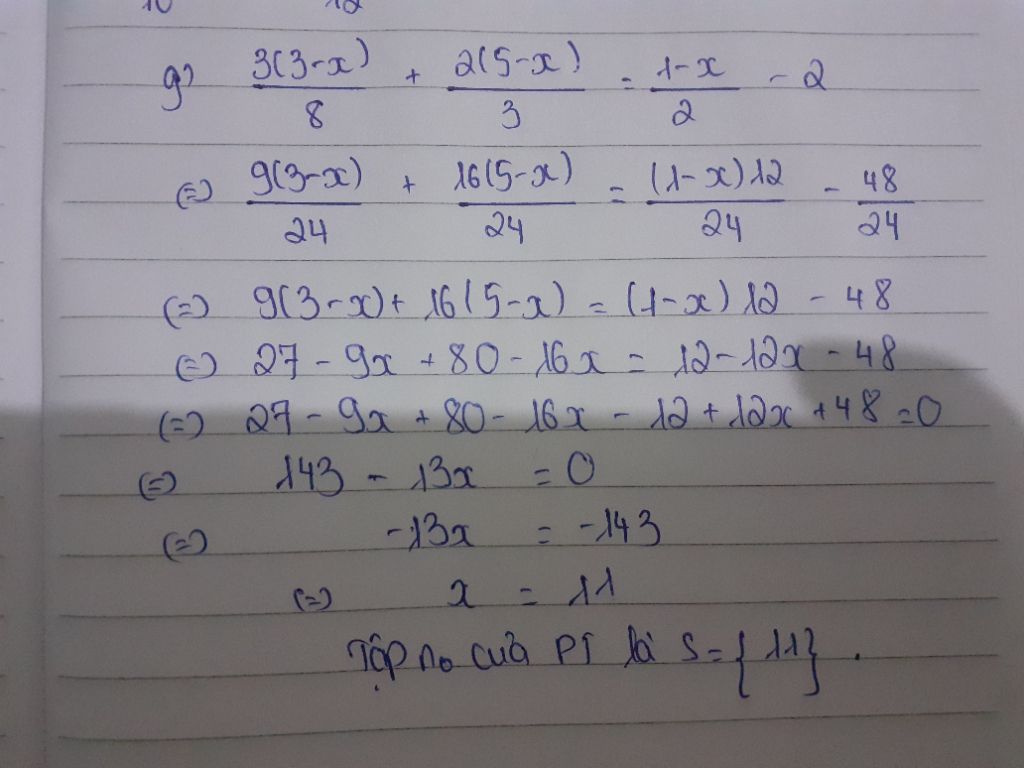 g) 3(3-x)/8 + 2(5-x)/3 = 1-x/2 - 2
(=) 9(3-x)/24 + 16(5-x)/24 = (1-x)12/24 - 48/24
(=) 9(3-x)+ 16(5-x) = (1-x)12 - 48
(=) 27 - 9x + 80 - 16x = 12 - 12x - 48
(=) 27 - 9x + 80 - 16x - 12 + 12x + 48 = 0
(=) 143 - 13x = 0
(=) -13x = -143
(=) x = 11
Tập no của PT là S = {11}.